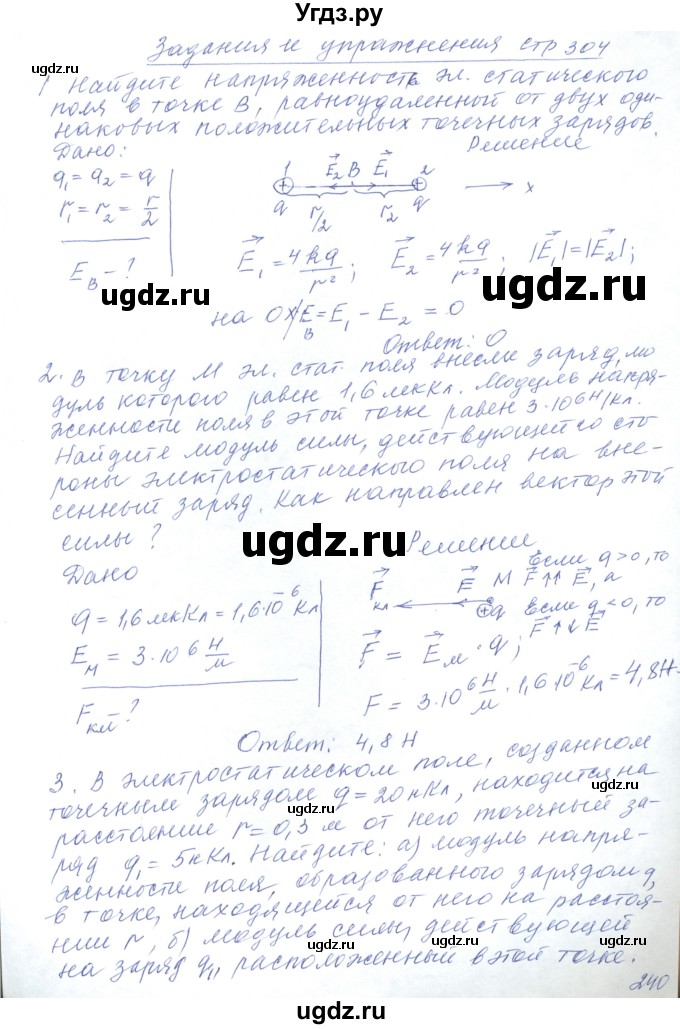 Угдз.ру
Задания и упражнения стр 304
1 Найдите напряженность эл. статического
поля в точке В, равноудаленный от двух оди-
наковых положительных точечных зарядов.
Дано: Решение
q₁ = q₂ = q
r₁ = r₂ = r/2
E_B - ?
1 E₂ B E₁ 2
q r/2 r₂ q x
E₁ = 4kq/r²; E₂ = 4kq/r²; |E₁|=|E₂|;
на OX E_B = E₁ - E₂ = 0
Ответ: 0
2. В точку М эл. стат. поля внесли заряд, мо
дуль которого равен 1,6 мкКл. Модуль напря-
женности поля в этой точке равен 3·10⁶ Н/Кл.
Найдите модуль силы, действующей со сто
роны электростатического поля на вне-
сенный заряд. Как направлен вектор этой
силы?
Дано Решение
q = 1,6 мкКл = 1,6·10⁻⁶ Кл
E_M = 3·10⁶ Н/м
F_кл - ?
F_кл E M q
Если q > 0, то
F ↑↑ E, а
Если q < 0, то
F ↑↓ E
F = E_м · q;
F = 3·10⁶ Н/м · 1,6·10⁻⁶ Кл = 4,8Н.
Ответ: 4,8 Н
3. В электростатическом поле, созданном
точечным зарядом q = 20 нКл, находится на
расстоянии r = 0,3 м от него точечный за-
ряд q₁ = 5нКл. Найдите: а) модуль напря-
женности поля, образованного зарядом q,
в точке, находящейся от него на расстоя-
нии r, б) модуль силы, действующей
на заряд q₁, расположенный в этой точке.
240
ugdz.ru
ugdz.ru
ugdz.ru
ugdz.ru
ugdz.ru
ugdz.ru
ugdz.ru
ugdz.ru
ugdz.ru
ugdz.ru
ugdz.ru
ugdz.ru
ugdz.ru